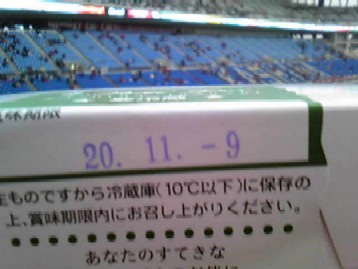 賞味期限
20. 11. -9
生ものですから冷蔵庫(10℃以下)に保存の
上、賞味期限内にお召し上がりください。
あなたのすてきな